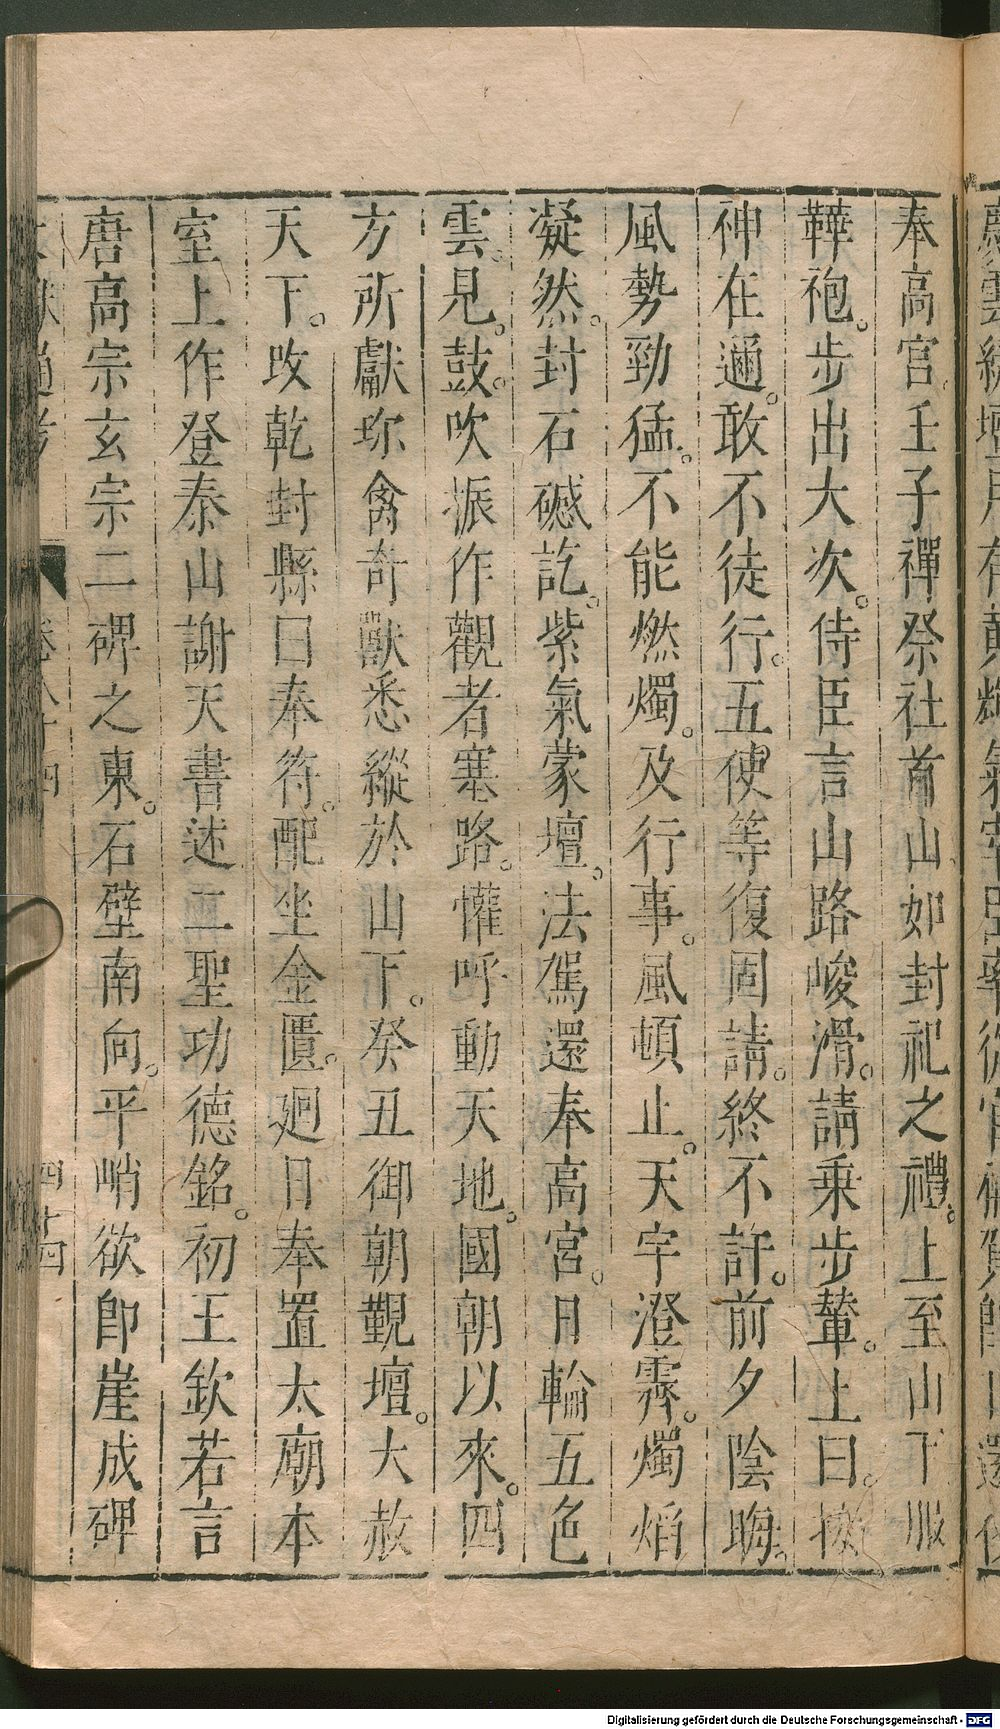 奉高宫壬子禪祭社首山如封祀之禮。上至山下服
鞾袍。步出大次。侍臣言山路峻滑。請乗步輦。上曰。接
神在邇。敢不徒行。五使等復固請。終不許。前夕陰晦。
風勢勁猛。不能燃燭。及行事。風頓止。天宇澄霽。燭焰
凝然。封石䃭訖。紫氣蒙壇。法駕還奉高宮。日輪五色
雲。見。鼓。吹振作觀者塞路。懽呼動天地。國朝以來。四
方所獻珎禽奇獸悉縱於山下。癸丑御朝覲壇。大赦
天下。改乾封縣曰奉符。配坐金匱。廻日奉置太廟本
室上作登泰山謝天書述二聖功德銘。初王欽若言
唐高宗玄宗二碑之東。石壁南向。平峭欲即崖成碑
卷八十四
四十四
Digitalisierung gefördert durch die Deutsche Forschungsgemeinschaft - DFG